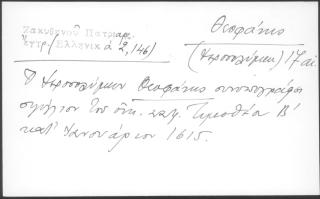 Ζακυθηνοῦ Πατριαρ.
ἔγγρ. (Ἑλληνικά 2, 146)
Θεοφάνης
(Ἱεροσολύμων) 17 αἰ.
Ὁ Ἱεροσολύμων Θεοφάνης συνυπογράφει
σιγίλλιον τοῦ οἰκ. πατρ. Τιμοθέου Β΄
κατ' Ἰανουάριον 1615.